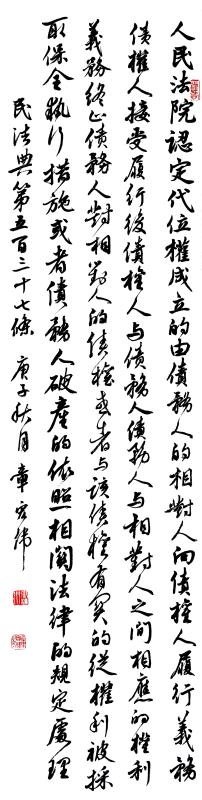 人民法院認定代位權成立的由債務人的相對人向債權人履行義務
債權人接受履行後債權人与債務人債務人与相對人之間相應的權利
義務終止債務人對相對人的債權或者与該債權有关的從權利被採
取保全執行措施或者債務人破產的依照相關法律的規定處理
民法典第五百三十七條 庚子秋月章宏偉